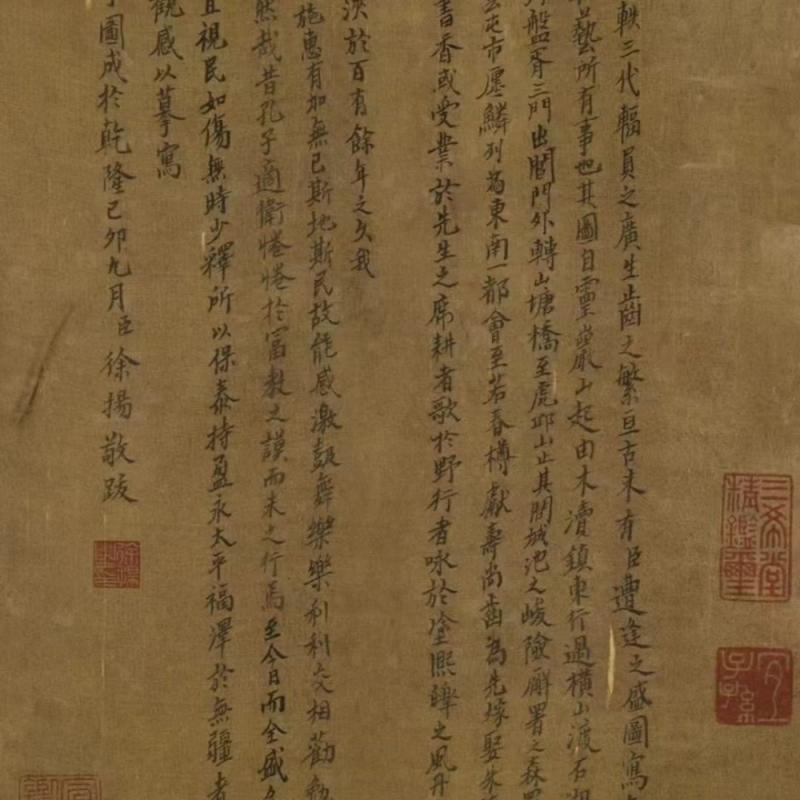 軼三代輻員之廣生齒之繁亘古未有臣遭逢之盛圖寫
藝所有事也其圖自靈巖山起由木瀆鎮東行過橫山渡石湖
盤胥三門出閶門外轉山塘橋至虎邱山止其間城池之峻險廨署之森羅
市廛鱗列為東南一都會至若春樽獻壽尚齒為先嫁娶朱
書香或受業於先生之席耕者歌於野行者咏於塗熙皞之風丹
浹於百有餘年之久我
施惠有加無已斯地斯民故能感激鼓舞樂樂利利交相勸勉
然哉昔孔子適衛惓惓於富教之謨而未之行焉至今日而全盛
且視民如傷無時少釋所以保泰持盈永太平福澤於無疆者
觀感以摹寫
圖成於乾隆己卯九月臣徐揚敬跋
三希堂精鑑璽
宜子孫